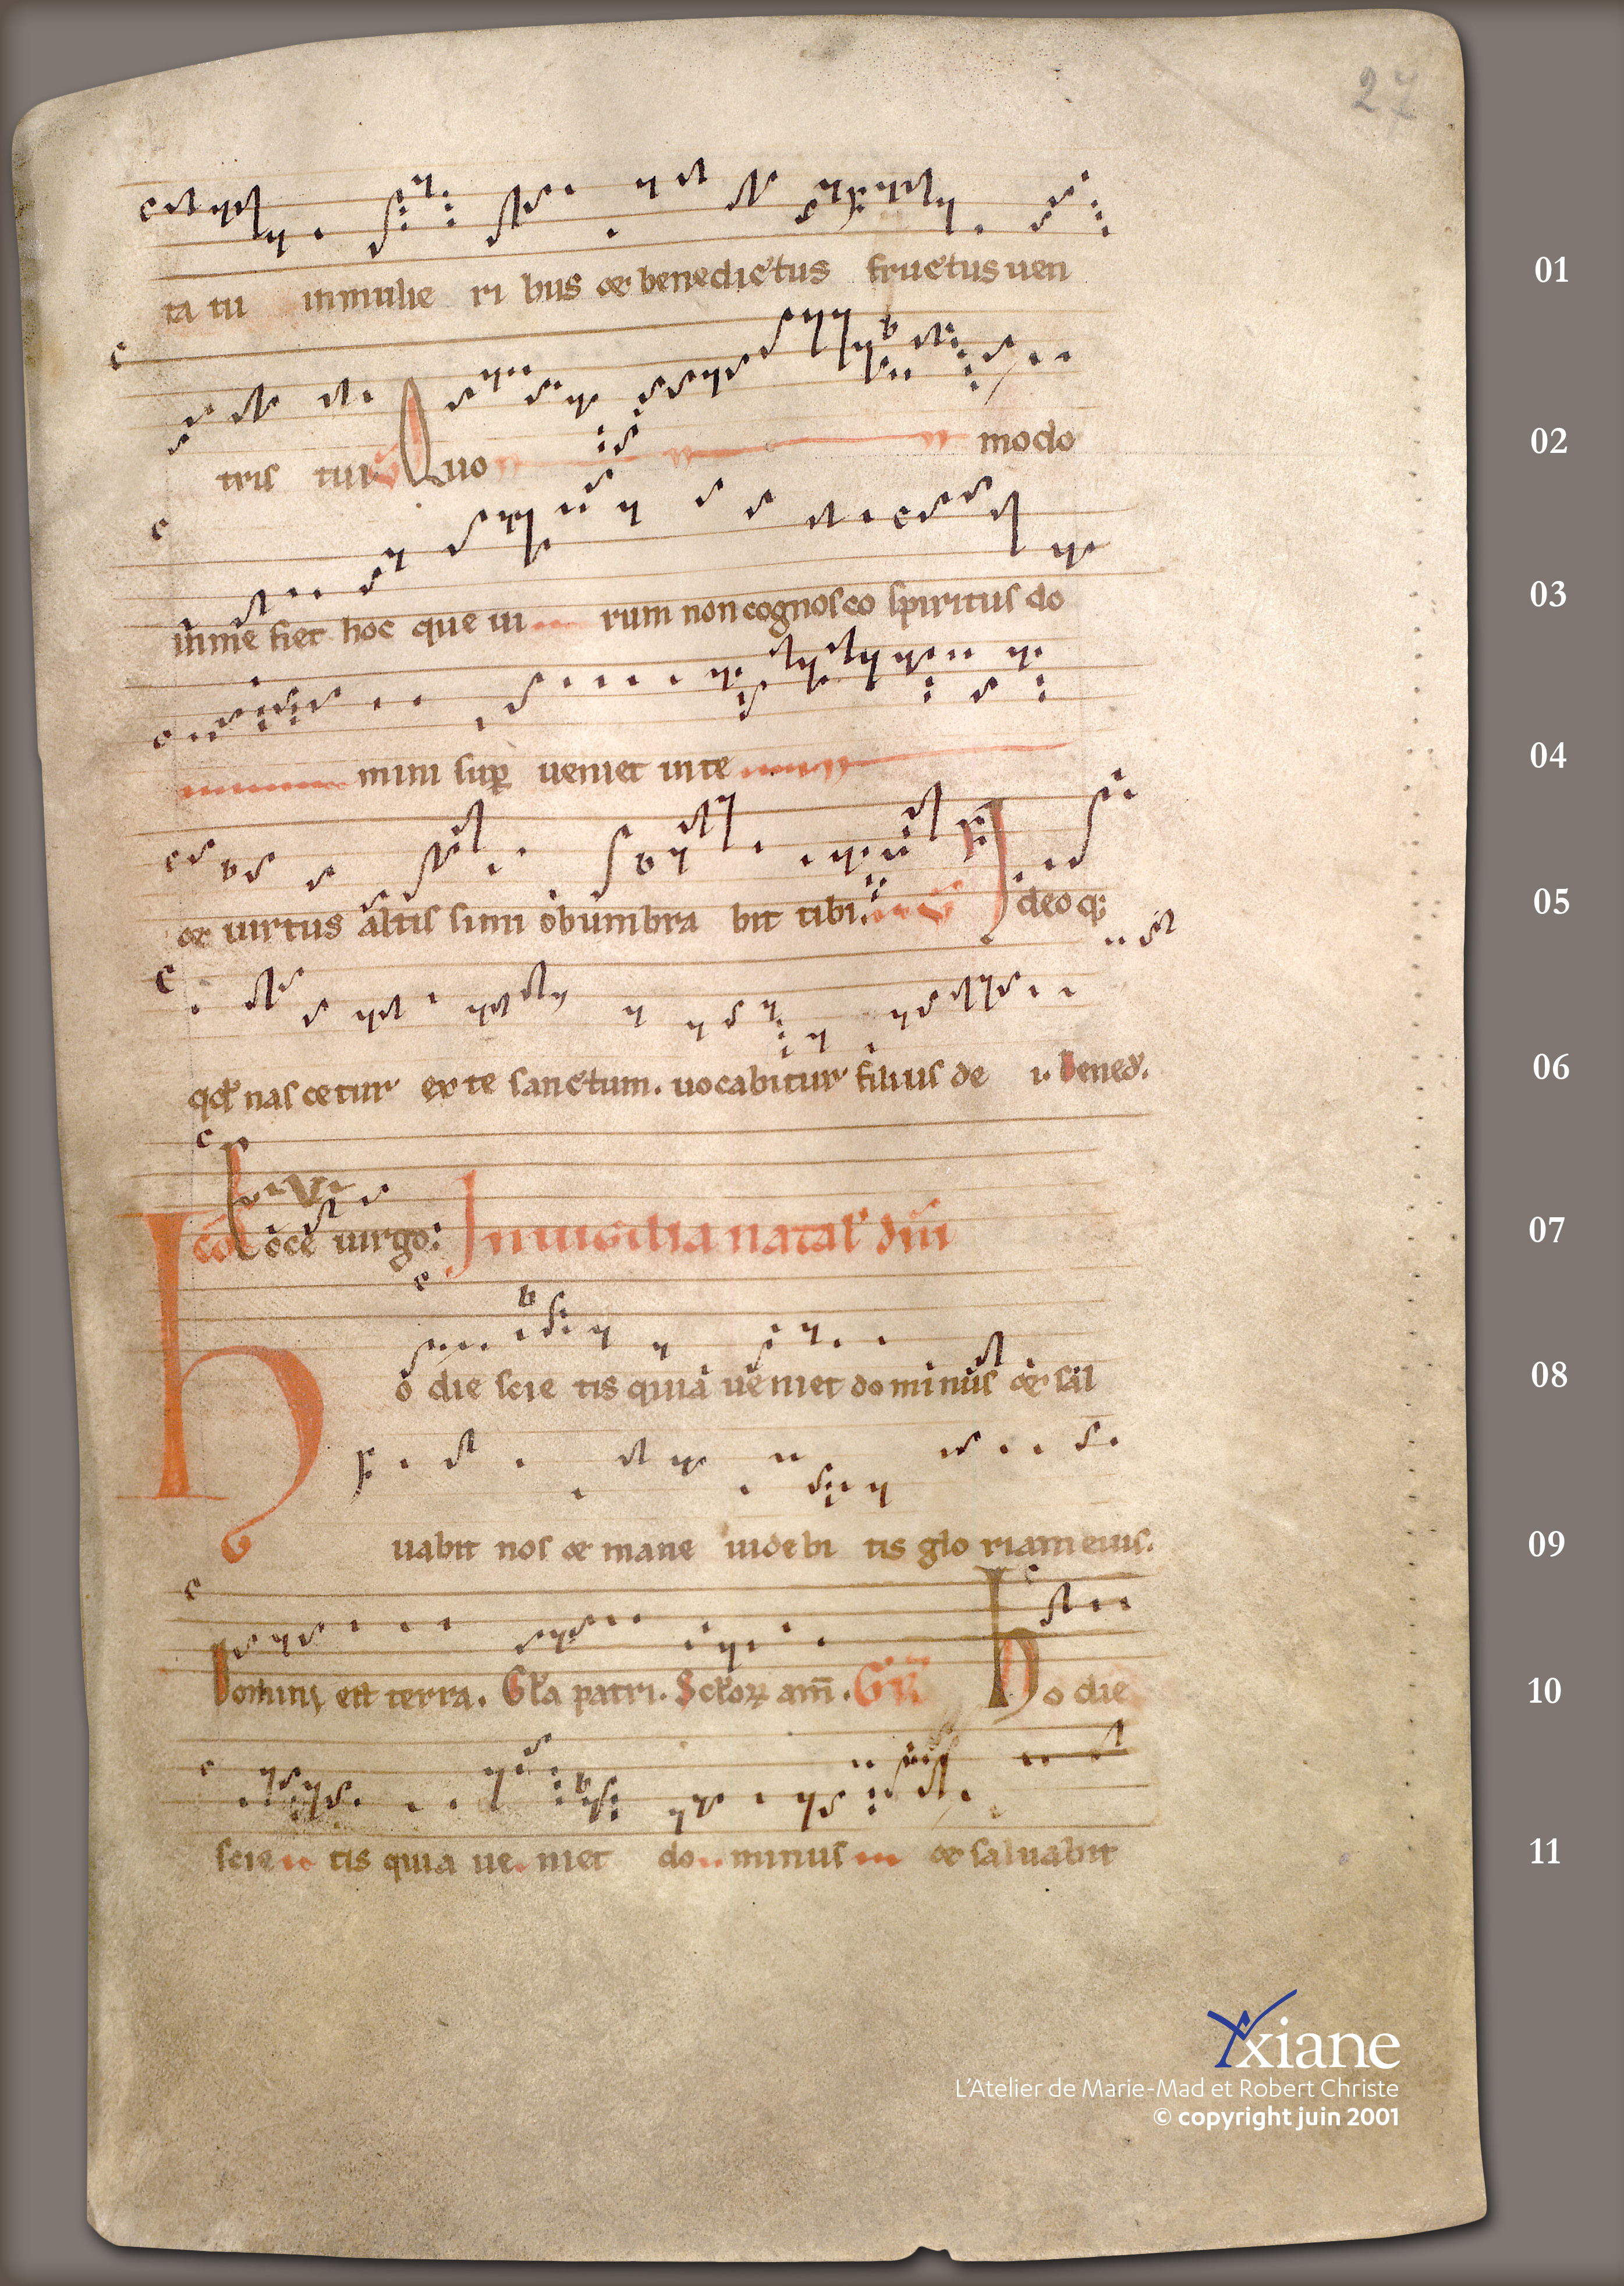 27
ta tu inmulie ri bus et benedictus fructus uen 01
tris tui V Quo modo 02
inme fiet hoc que ui rum non cognosco spiritus do 03
mini sup ueniet in te 04
et uirtus altis simi obumbra bit tibi. V Ideoq; 05
qd nas cetur ex te sanctum. uocabitur filius de i. Bened. 06
co Ecce uirgo: In uigilia natal dni 07
Ho die scie tis quia ueniet dominus et sal 08
uabit nos et mane uidebi tis gloriam eius. 09
Domini est terra. Gla patri. Sclor am. GR Ho die 10
scie tis quia ue niet do minus et saluabit 11
Yxiane
L'Atelier de Marie-Mad et Robert Christe
© copyright juin 2001